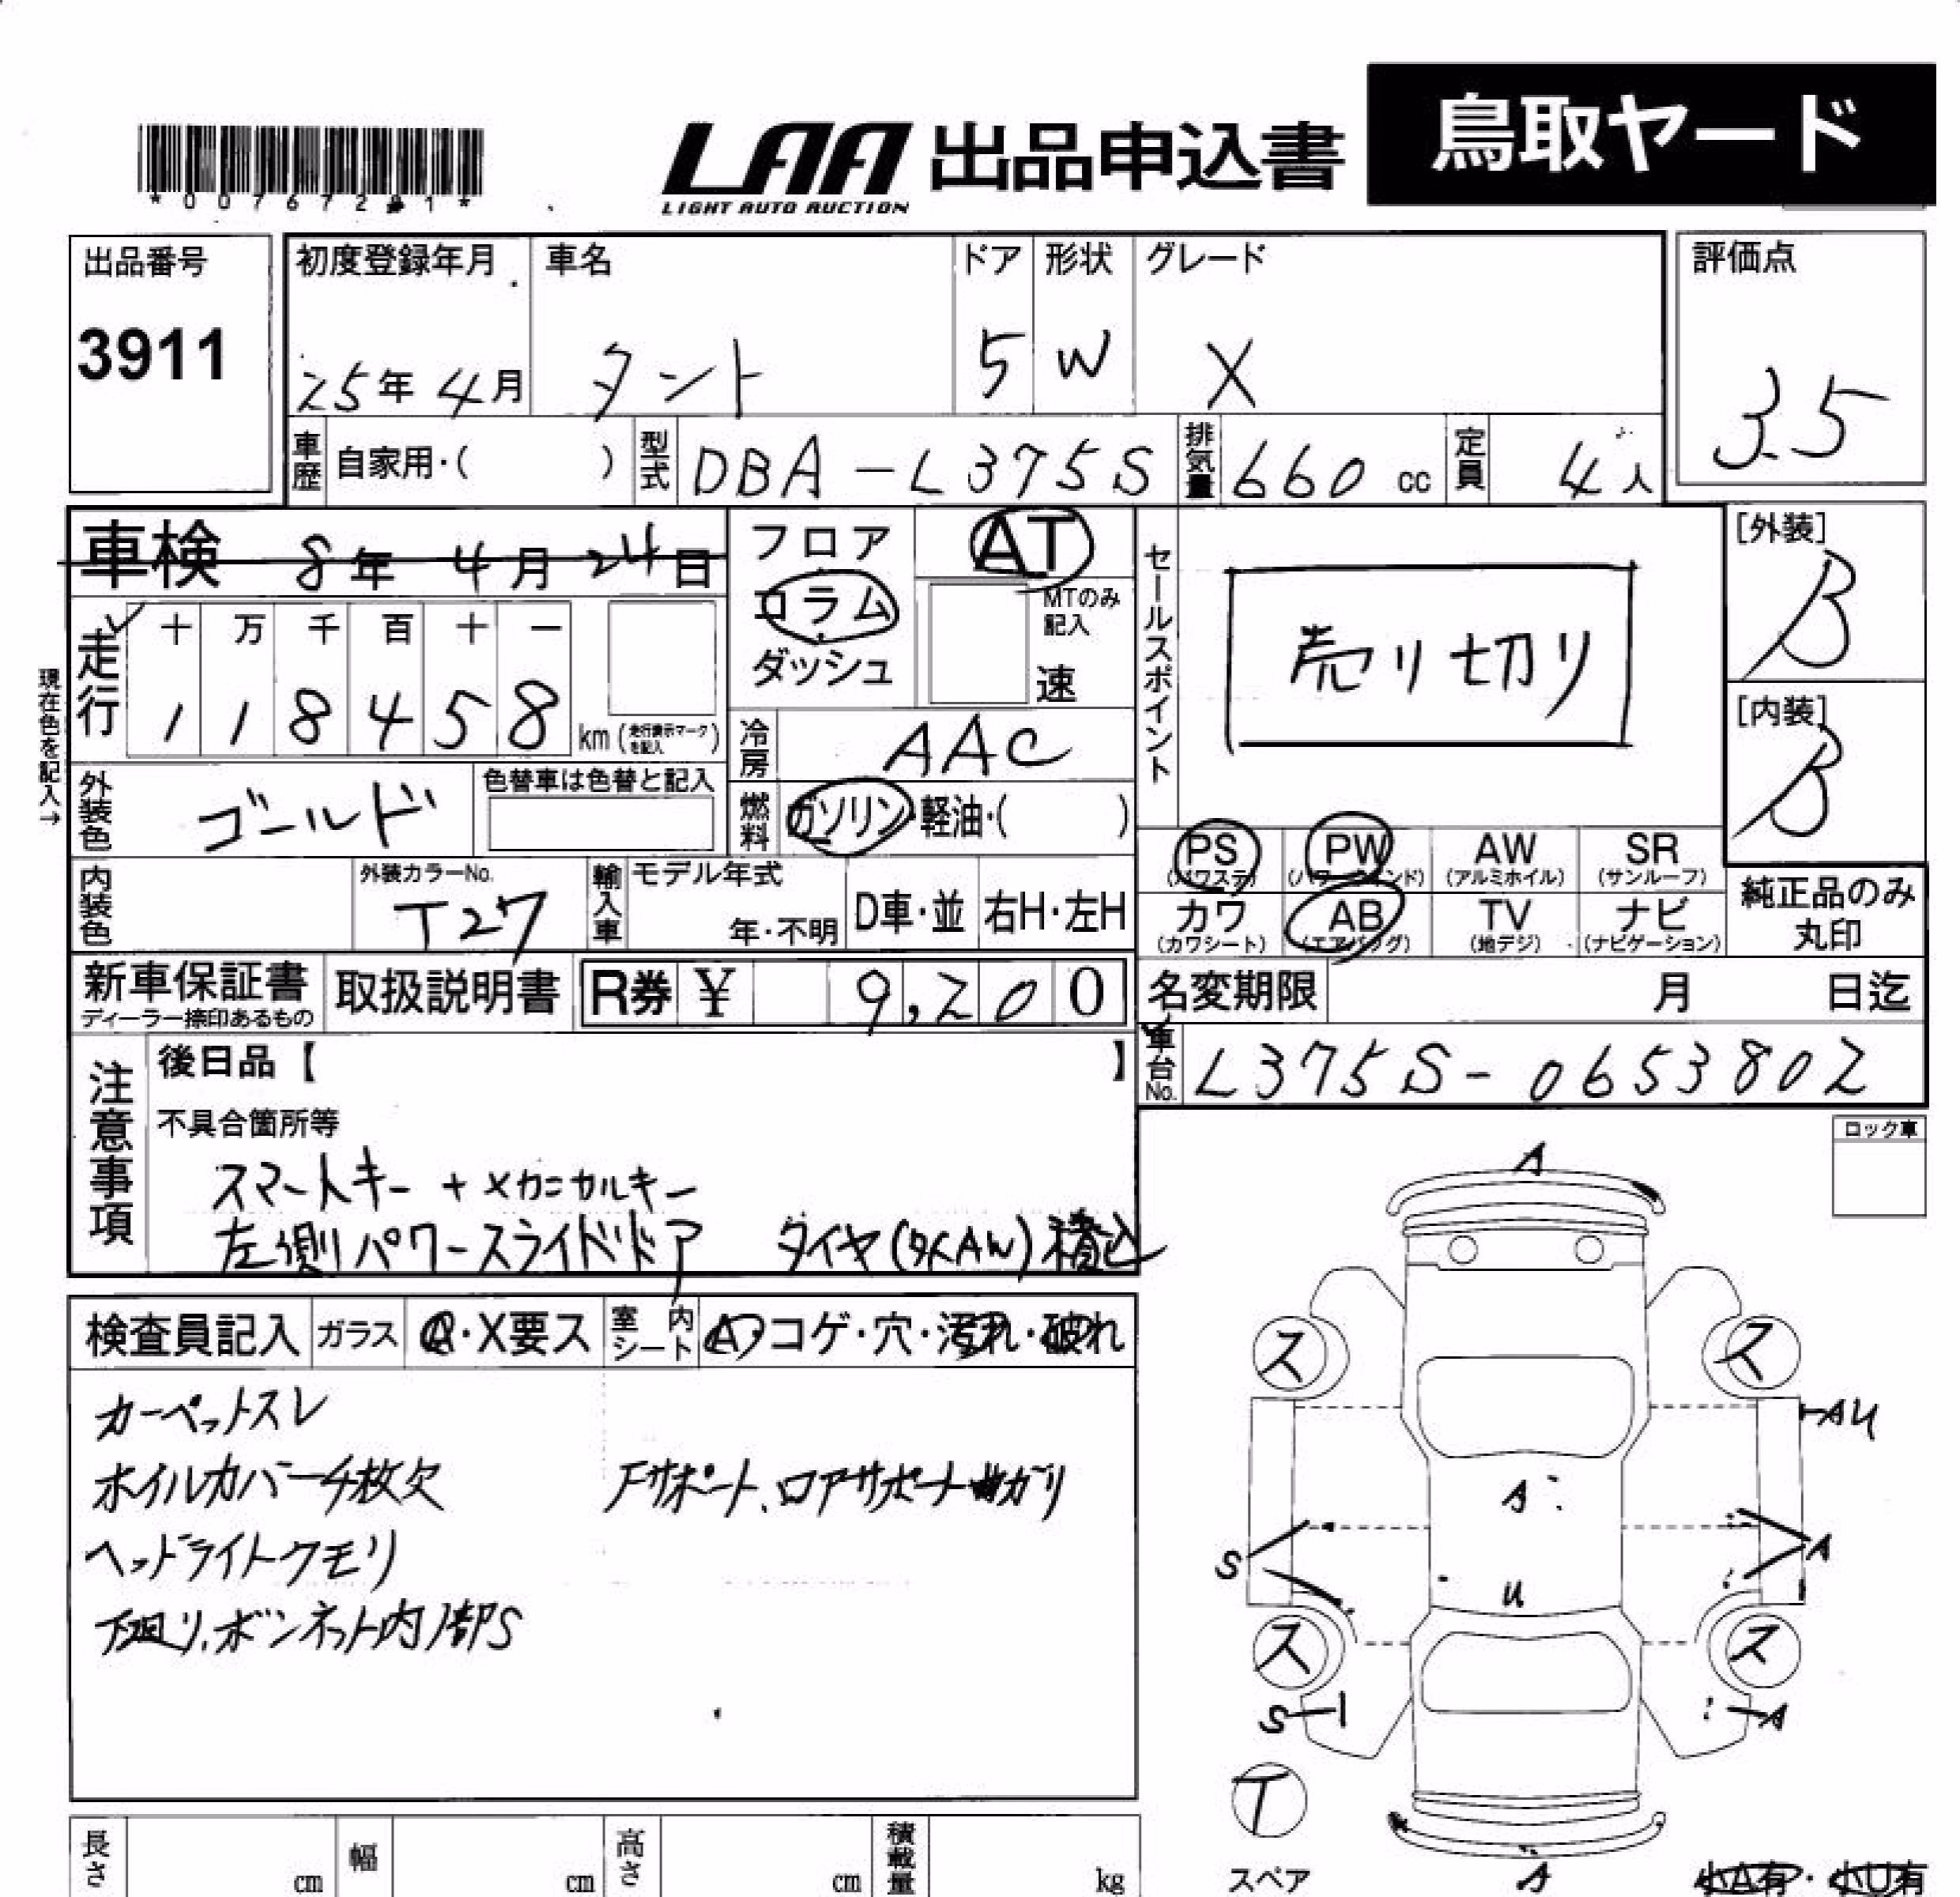 鳥取ヤード
LAA 出品申込書
LIGHT AUTO AUCTION
出品番号 初度登録年月 車名 ドア 形状 グレード 評価点
3911 25年 4月 タント 5 W X 3.5
車歴 自家用・( ) 型式 DBA-L375S 排気量 660 cc 定員 4人
車検 8年 4月 24日
フロア AT
コラム MTのみ記入
ダッシュ 速
セールスポイント
売り切り
[外装]
B
[内装]
B
走行 十 万 千 百 十 一
1 1 8 4 5 8 km (走行表示マークを記入)
現在色を記入→
冷房 AAC
外装色 ゴールド 色替車は色替と記入
燃料 ガソリン・軽油・( )
PS (パワステ) PW (パワーウインド) AW (アルミホイル) SR (サンルーフ)
カワ (カワシート) AB (エアバッグ) TV (地デジ) ナビ (ナビゲーション)
純正品のみ
丸印
内装色 外装カラーNo. T27 輸入車 モデル年式 年・不明 D車・並 右H・左H
新車保証書 ディーラー捺印あるもの 取扱説明書 R券 ¥ 9,200
名変期限 月 日迄
車台No. L375S-0653802
注意事項
後日品【 】
不具合箇所等
スマートキー + メカニカルキー
左側パワースライドドア タイヤ(タイAW)積込
ロック車
検査員記入 ガラス A・X要ス 室内シート A・コゲ・穴・汚れ・破れ
カーペットスレ
ホイルカバー4枚欠 Fサポート、ロアサポートマガリ
ヘッドライトクモリ
下廻り、ボンネット内部S
A
ス ス
AU
A
S A
U
ス ス
S A
T
スペア
A
小A有・小U有
長さ cm 幅 cm 高さ cm 積載量 kg